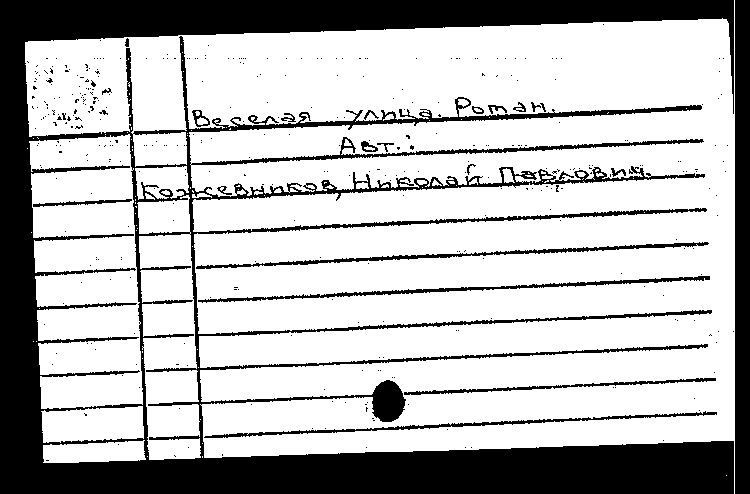 Веселая улица. Роман.
Авт.:
Кожевников, Николай Павлович.